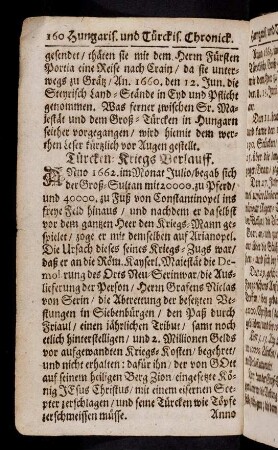 160 Hungaris. und Türckis. Chronick.
gesendet / thäten sie mit dem Herrn Fürsten
Portia eine Reise nach Crain / da sie unter-
wegs zu Grätz / An. 1660. den 12. Jun. die
Steyrisch Land-Stände in Eyd und Pflicht
genommen. Was ferner zwischen Sr. Ma-
jestät und dem Groß-Türcken in Hungarn
seither vorgegangen / wird hiemit dem wer-
then Leser kürtzlich vor Augen gestellt.
Türcken-Kriegs Verlauff.
ANno 1662. im Monat Julio / begab sich
der Groß-Sultan mit 20000. zu Pferd /
und 40000. zu Fuß von Constantinopel ins
freye Feld hinaus / und nachdem er daselbst
vor dem gantzen Heer den Kriegs-Mann ge-
spielet / zoge er mit demselben auf Arianopel.
Die Ursach dieses seines Kriegs-Zugs war /
daß er an die Röm. Kayserl. Majestät die De-
molirung des Orts Neu Serinwar / die Aus-
lieferung der Person / Herrn Grafens Niclas
von Serin / die Abrettung der besetzten Ve-
stungen in Siebenbürgen / den Paß durch
Friaul / einen jährlichen Tribut / samt noch
etlich hinterstelligen / und 2. Millionen Golds
vor aufgewandten Kriegs-Kosten / begehret /
und nicht erhalten: dafür ihn / der von GOtt
auf seinem heiligen Berg Zion eingesetzte Kö-
nig JEsus Christus / mit einem eisernen Sce-
pter zerschlagen / und seine Türcken wie Töpfe
zerschmeissen müsse.
Anno